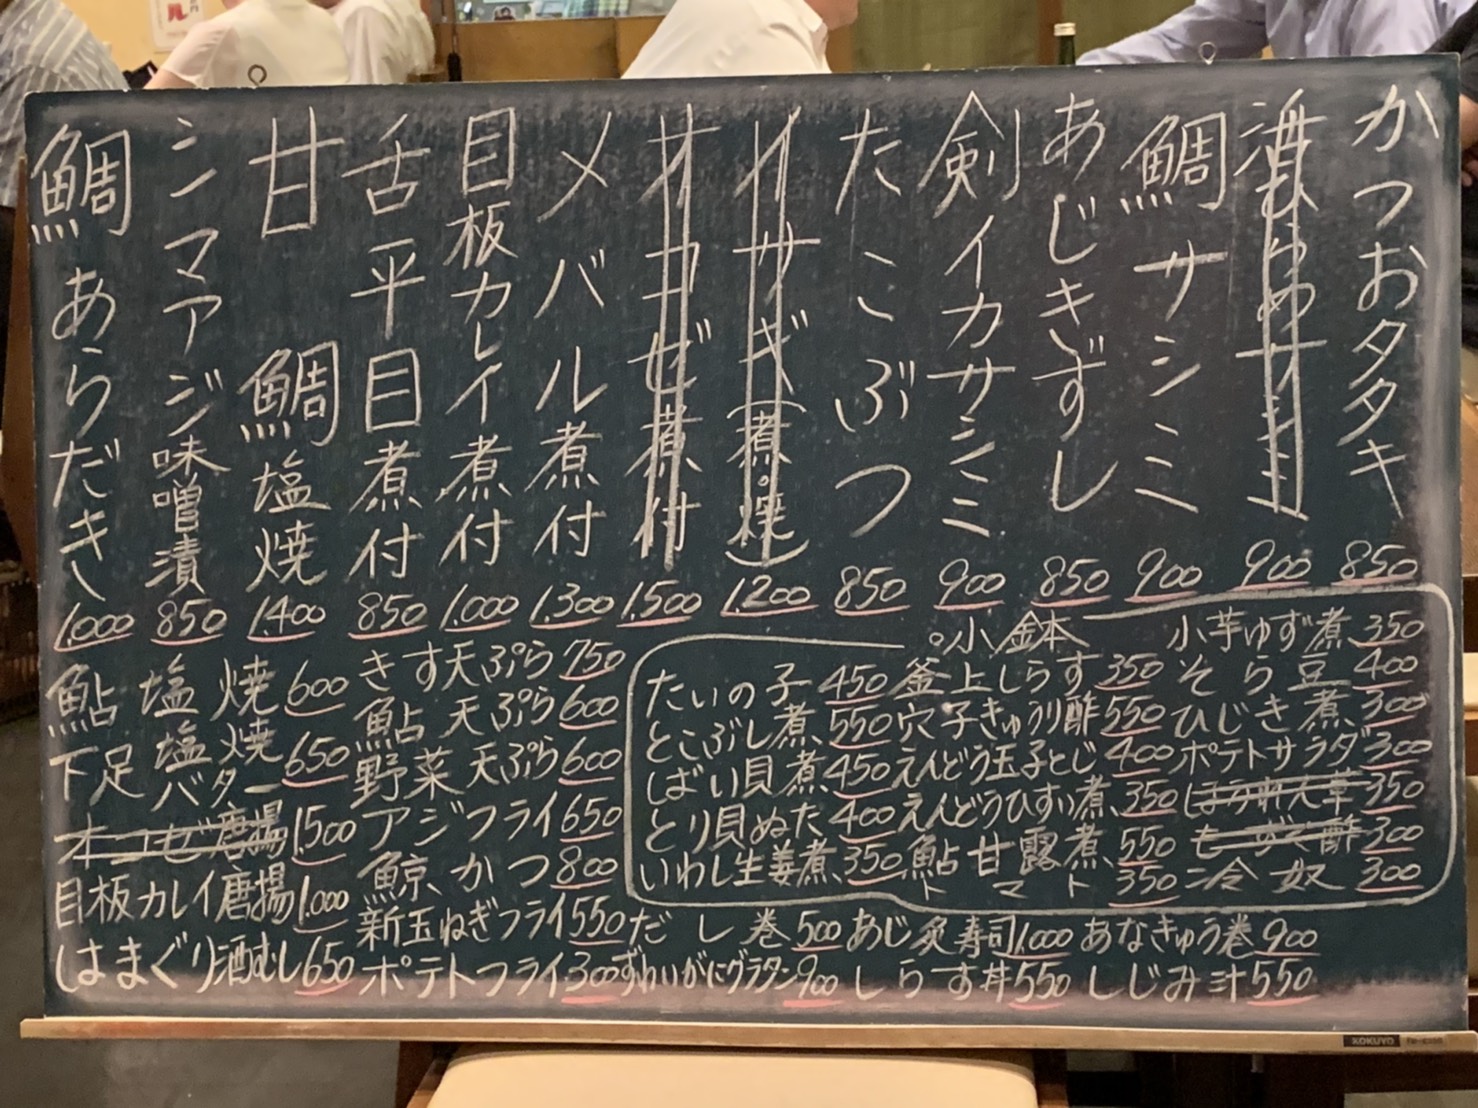 かつおタタキ 850
鯛サシミ 900
あじきずし 850
剣イカサシミ 900
たこぶつ 850
イサギ(煮。焼) 1,200
オコゼ煮付 1,500
メバル煮付 1,300
目板カレイ煮付 1,000
舌平目煮付 850
甘鯛塩焼 1,400
シマアジ味噌漬 850
鯛あらだき 1,000
鮎塩焼 600
下足塩焼バター 650
オコゼ唐揚 1,500
目板カレイ唐揚 1,000
はまぐり酒むし 650
きす天ぷら 750
鮎天ぷら 600
野菜天ぷら 600
アジフライ 650
鯨かつ 800
新玉ねぎフライ 550
ポテトフライ 300
。小鉢
たいの子 450
とこぶし煮 550
ばい貝煮 450
とり貝ぬた 400
いわし生姜煮 350
釜上しらす 350
穴子きゅうり酢 550
えんどう玉子とじ 400
えんどうひすい煮 350
鮎甘露煮 550
トマト 350
小芋ゆず煮 350
そら豆 400
ひじき煮 300
ポテトサラダ 300
ほうれん草 350
もずく酢 300
冷奴 300
だし巻 500
あじ炙寿司 1,000
あなきゅう巻 900
ずわいがにグラタン 900
しらす丼 550
しじみ汁 550
KOKUYO